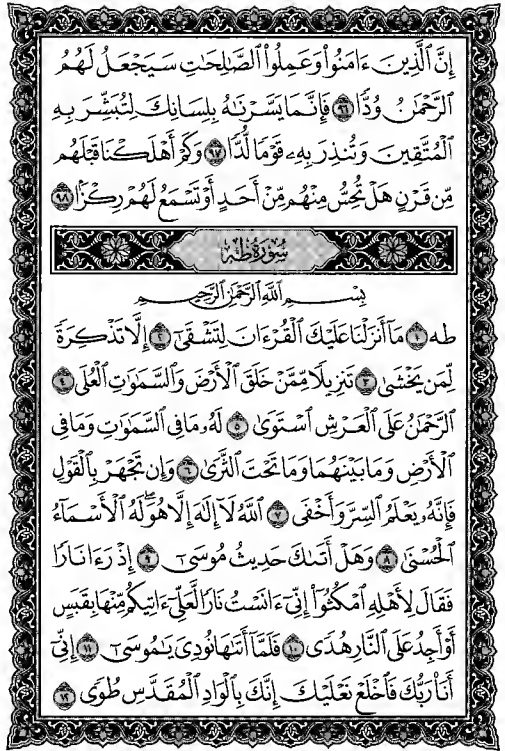 إِنَّ ٱلَّذِينَ ءَامَنُوا۟ وَعَمِلُوا۟ ٱلصَّٰلِحَٰتِ سَيَجْعَلُ لَهُمُ
ٱلرَّحْمَٰنُ وُدًّا ٩٦ فَإِنَّمَا يَسَّرْنَٰهُ بِلِسَانِكَ لِتُبَشِّرَ بِهِ
ٱلْمُتَّقِينَ وَتُنذِرَ بِهِۦ قَوْمًا لُّدًّا ٩٧ وَكَمْ أَهْلَكْنَا قَبْلَهُم
مِّن قَرْنٍ هَلْ تُحِسُّ مِنْهُم مِّنْ أَحَدٍ أَوْ تَسْمَعُ لَهُمْ رِكْزًۢا ٩٨
سُورَةُ طه
بِسْمِ ٱللَّهِ ٱلرَّحْمَٰنِ ٱلرَّحِيمِ
طه ١ مَآ أَنزَلْنَا عَلَيْكَ ٱلْقُرْءَانَ لِتَشْقَىٰٓ ٢ إِلَّا تَذْكِرَةً
لِّمَن يَخْشَىٰ ٣ تَنزِيلًا مِّمَّنْ خَلَقَ ٱلْأَرْضَ وَٱلسَّمَٰوَٰتِ ٱلْعُلَى ٤
ٱلرَّحْمَٰنُ عَلَى ٱلْعَرْشِ ٱسْتَوَىٰ ٥ لَهُۥ مَا فِى ٱلسَّمَٰوَٰتِ وَمَا فِى
ٱلْأَرْضِ وَمَا بَيْنَهُمَا وَمَا تَحْتَ ٱلثَّرَىٰ ٦ وَإِن تَجْهَرْ بِٱلْقَوْلِ
فَإِنَّهُۥ يَعْلَمُ ٱلسِّرَّ وَأَخْفَى ٧ ٱللَّهُ لَآ إِلَٰهَ إِلَّا هُوَ ۖ لَهُ ٱلْأَسْمَآءُ
ٱلْحُسْنَىٰ ٨ وَهَلْ أَتَىٰكَ حَدِيثُ مُوسَىٰٓ ٩ إِذْ رَءَا نَارًا
فَقَالَ لِأَهْلِهِ ٱمْكُثُوٓا۟ إِنِّىٓ ءَانَسْتُ نَارًا لَّعَلِّىٓ ءَاتِيكُم مِّنْهَا بِقَبَسٍ
أَوْ أَجِدُ عَلَى ٱلنَّارِ هُدًى ١٠ فَلَمَّآ أَتَىٰهَا نُودِىَ يَٰمُوسَىٰٓ ١١ إِنِّىٓ
أَنَا۠ رَبُّكَ فَٱخْلَعْ نَعْلَيْكَ إِنَّكَ بِٱلْوَادِ ٱلْمُقَدَّسِ طُوًى ١٢